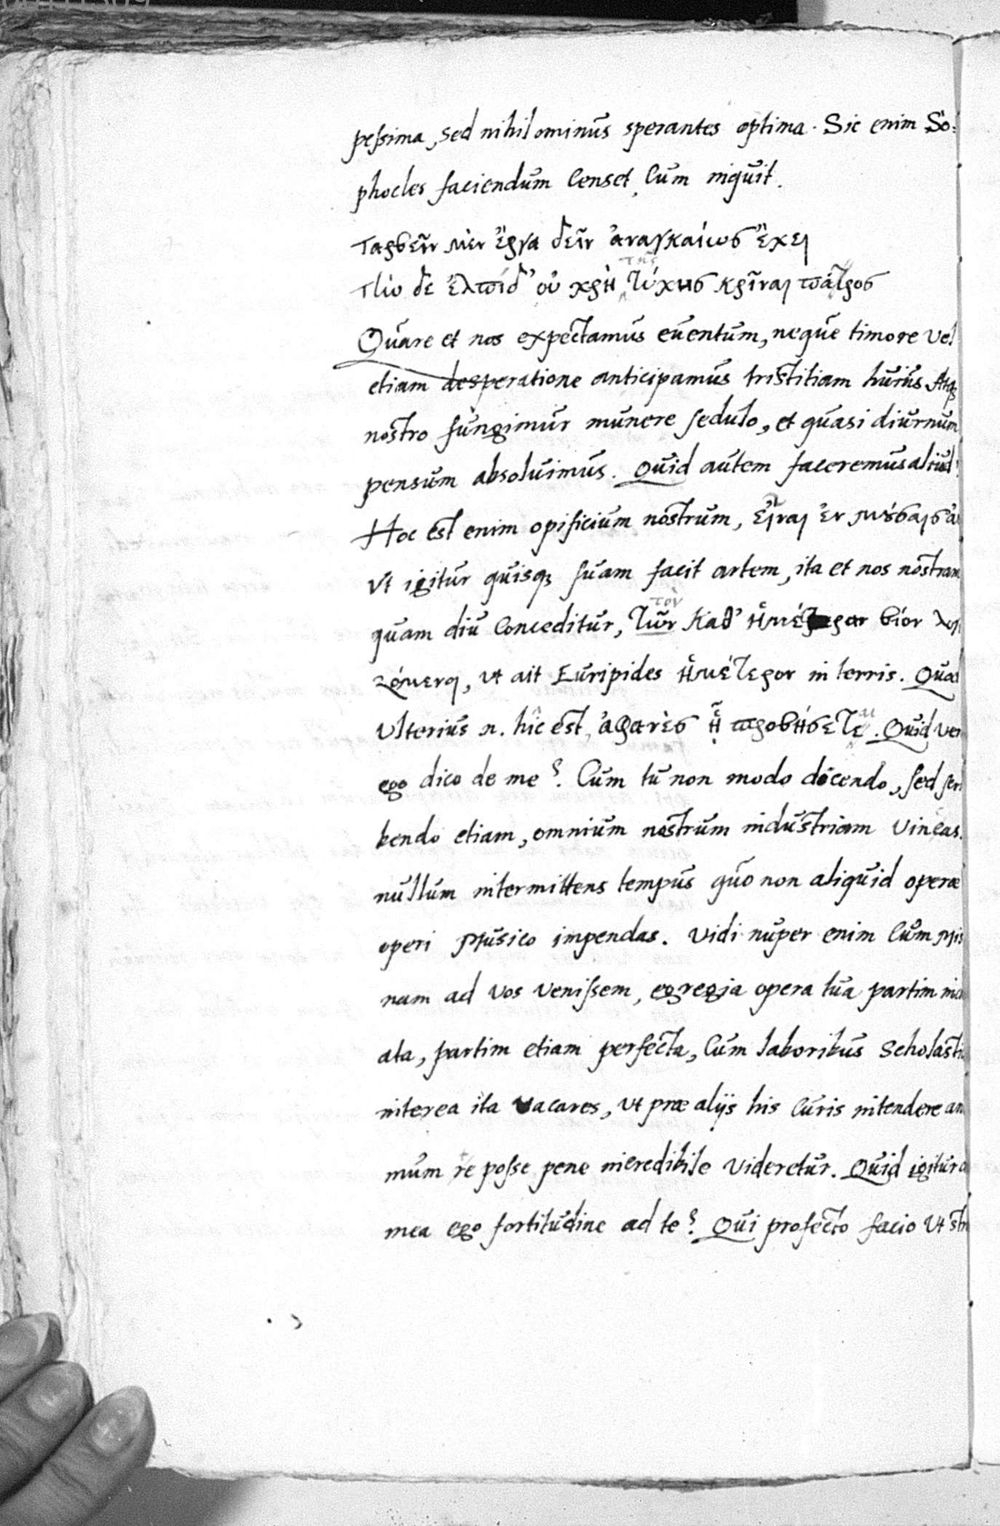 peſsima, sed nihilominus sperantes optima. Sic enim So:
phocles faciendum Censet, Cum inquit.
ταρβεῖν μὲν ἔργα δεῖν ἀναγκαίως ἔχει
τὴν δὲ ἐλπίδ' οὐ χρὴ τῆς τύχης κρῖναι πάρος
Quare et nos expectamus euentum, neque timore vel
etiam desperatione anticipamus tristitiam huius Atq;
nostro fungimur munere sedulo, et quasi diurnum
pensum absoluimus. Quid autem faceremus aliud?
Hoc est enim opificium nostrum, εἶναι ἐν μούσαις
Vt igitur quisq; suam facit artem, ita et nos nostram
quam diu Conceditur, τῶν τὸν καθ' βίον
, vt ait Euripides ἡμέτερον in terris. Quod
Vlterius n. hic est, ἀφανὲς ἢ . Quid ver
ego dico de me? Cum tu non modo docendo, sed scri
bendo etiam, omnium nostrum industriam Vincas.
nullum intermittens tempus quo non aliquid operæ
operi Musico impendas. Vidi nuper enim Cum Mis
nam ad vos venissem, egregia opera tua partim inco
ata, partim etiam perfecta, Cum laboribus Scholasti
interea ita vacares, vt præ alijs his Curis intendere ani
mum te posse pene incredibile videretur. Quid igitur a
mea ego fortitudine ad te? Qui profecto facio vt